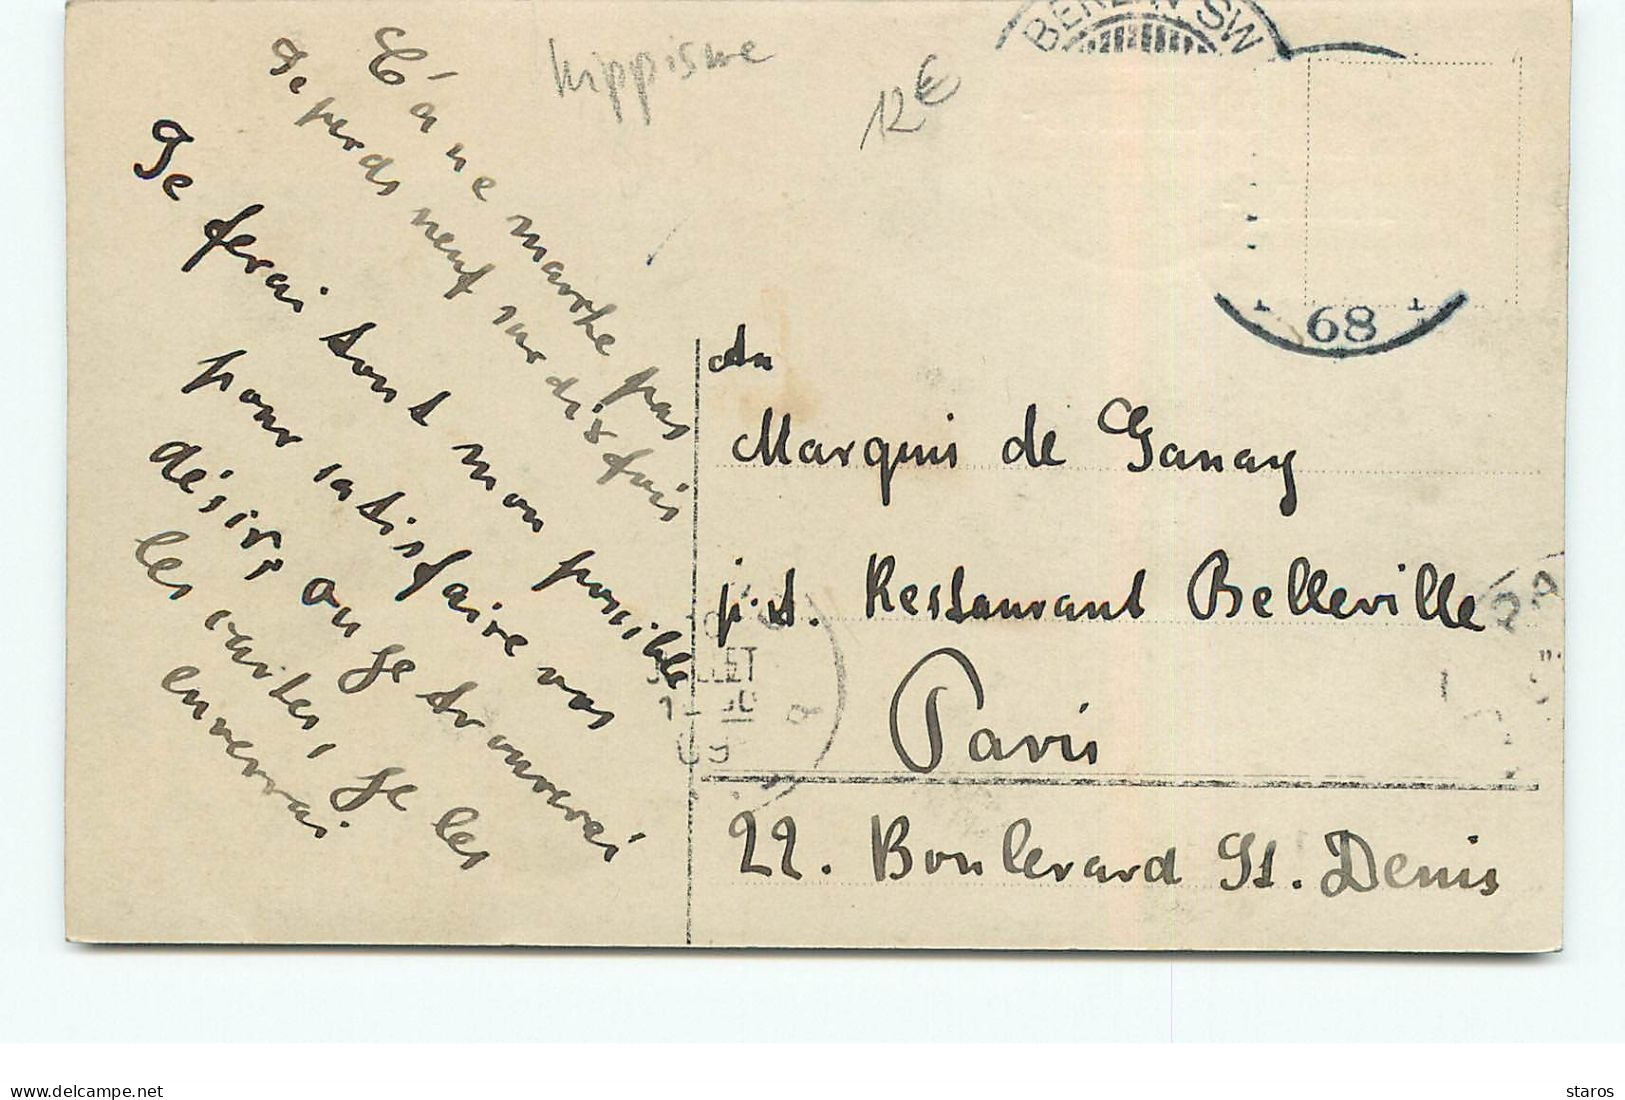 BERLIN SW
68
hippisme
12€
Ç'a ne marche pas
Je perds neuf sur dix fois
Je ferai tout mon possible
pour satisfaire vos
désirs ou je trouverai
les cartes, je les
enverrai
du
Marquis de Ganay
p. ad. Restaurant Belleville
Paris
22. Boulevard St. Denis
JUILLET
09
delcampe.net
staros